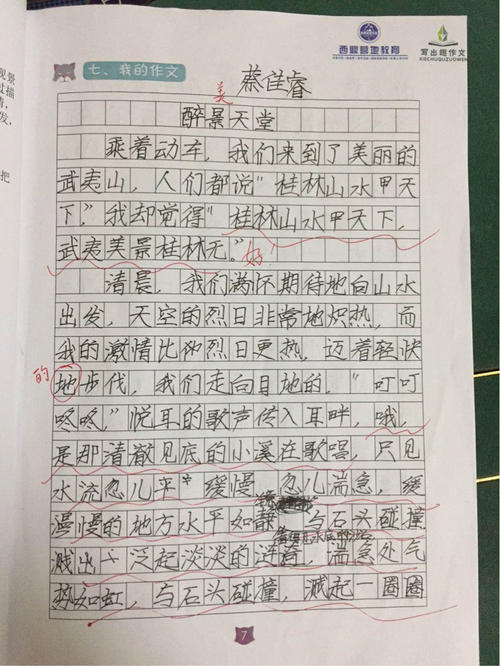 西郊营地教育
写出趣作文
XIECHUQUZUOWEN
七、我的作文
蔡佳睿
美
醉景天堂
乘着动车，我们来到了美丽的
武夷山，人们都说“桂林山水甲天
下，”我却觉得“桂林山水甲天下，
武夷美景桂林无。”好！
清晨，我们满怀期待地向山水
出发，天空的烈日非常地炽热，而
我的激情比他烈日更热，迈着轻快
的
地步伐，我们走向目地的，“叮叮
咚咚”悦耳的歌声传入耳畔，哦，
是那清澈见底的小溪在歌唱，只见
水流忽儿平 缓慢 忽儿湍急，缓
漫慢的地方水平如静 与石头碰撞
溅出 泛起淡淡的涟漪，湍急处气
势如虹，与石头碰撞，溅起一圈圈
7